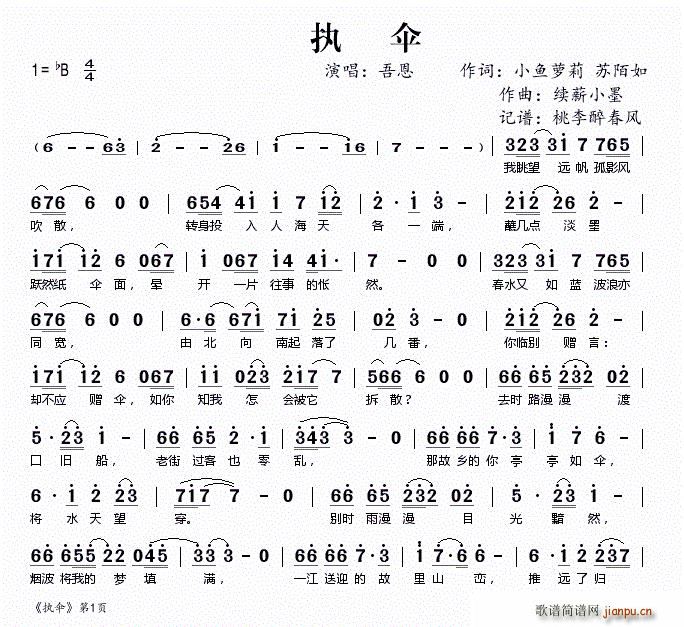 执 伞
1=♭B 4/4 演唱：吾恩 作词：小鱼萝莉 苏陌如
作曲：续薪小墨
记谱：桃李醉春风
( 6 - - 63 | 2 - - 26 | 1 - - 16 | 7 - - - ) | 323 31 7 765
我眺望 远帆 孤影风
676 6 0 0 | 654 41 1 7 12 | 2· 1 3 - | 212 26 2 -
吹散， 转身投 入人海天 各一端， 蘸几点 淡墨
171 12 6 067 | 1 067 14 41· | 7 - 0 0 | 323 31 7 765
跃然纸 伞面，晕 开 一片 往事的怅 然。 春水又 如蓝 波浪亦
676 6 0 0 | 6·6 671 71 25 | 02 3 - 0 | 212 26 2 -
同宽， 由北 向 南起 落了 几番， 你临别 赠言：
171 12 6 067 | 11 023 217 7 | 566 6 0 0 | 66 65 232 02
却不应 赠伞，如你 知我 怎 会被它 拆散？ 去时 路漫漫 渡
5· 23 1 - | 66 65 2·1 | 343 3 - 0 | 66 66 7·3 | 1 7 6 5
口旧船， 老街 过客 也零 乱， 那故 乡的 你亭 亭如伞，
6·1 2 23 | 717 7 - 0 | 66 65 232 02 | 5· 23 1 -
将水天望 穿。 别时 雨漫漫 目 光黯然，
66 655 22 045 | 33 3 - 0 | 66 66 7·3 | 17·6 6 | 6·1 2 237
烟波 将我的 梦 填 满， 一江 送迎 的故 里山峦， 推远了归
《执伞》第1页
歌谱简谱网
jianpu.cn